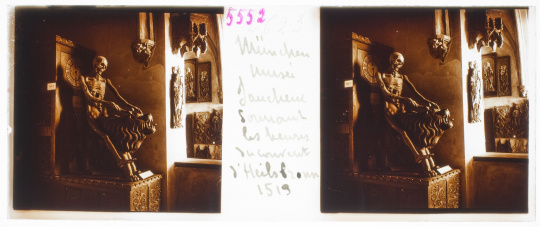 5552
München
Musée
Faucheuse
Sonnant
les heures
du couvent
d'Heilsbronn
1513